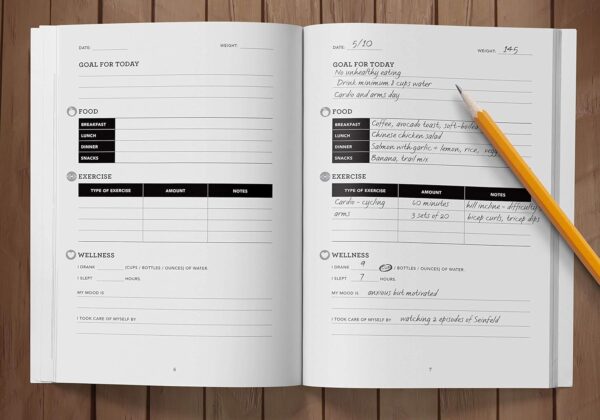 DATE: WEIGHT:
GOAL FOR TODAY
FOOD
BREAKFAST
LUNCH
DINNER
SNACKS
EXERCISE
TYPE OF EXERCISE AMOUNT NOTES
WELLNESS
I DRANK (CUPS / BOTTLES / OUNCES) OF WATER.
I SLEPT HOURS.
MY MOOD IS
I TOOK CARE OF MYSELF BY
6
DATE: 5/10 WEIGHT: 145
GOAL FOR TODAY
No unhealthy eating
Drink minimum 8 cups water
Cardo and arms day
FOOD
BREAKFAST Coffee, avocado toast,
LUNCH Chinese chicken salad
DINNER Salmon with garlic + lemon, rice,
SNACKS Banana, trail mix
EXERCISE
TYPE OF EXERCISE AMOUNT NOTES
Cardo - cycling 60 minutes hill incline - difficulty
arms 3 sets of 20 bicep curls, tricep dips
WELLNESS
I DRANK 9 / BOTTLES / OUNCES) OF WATER.
I SLEPT 7 HOURS.
MY MOOD IS anxious but motivated
I TOOK CARE OF MYSELF BY watching 2 episodes of Seinfeld
7